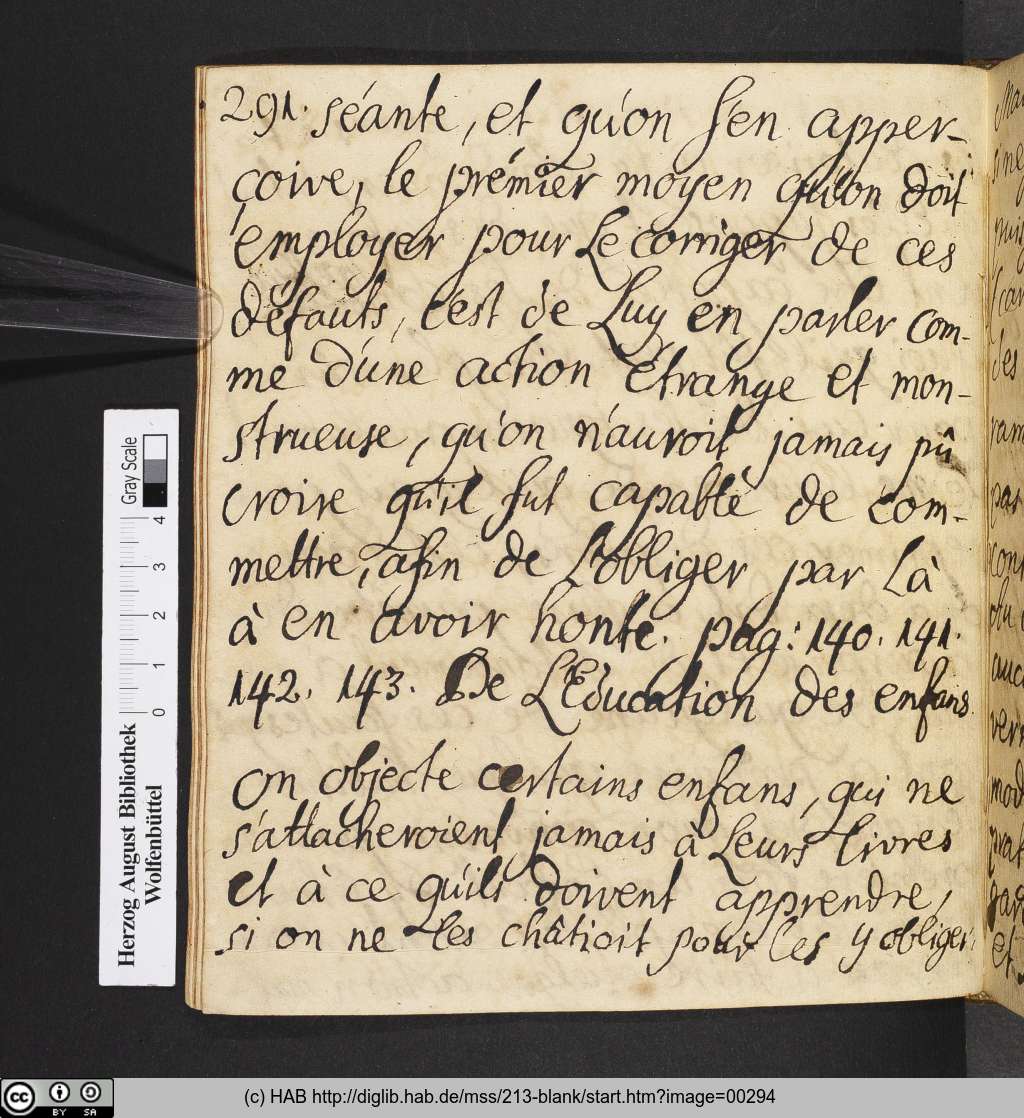 291. séante, et qu'on s'en apper-
çoive, le prémier moyen qu'on doit
employer pour Le corriger de ces
défauts, c'est de Luy en parler com-
me d'une action étrange et mon-
strueuse, qu'on n'auroit jamais pû
croire qu'il fut capable de com-
mettre, afin de L'obliger par Là
à en avoir honte. pag: 140. 141.
142. 143. De L'Education des enfans.
On objecte certains enfans, qui ne
s'attacheroient jamais à Leurs livres
et à ce qu'ils doivent apprendre,
si on ne les châtioit pour les y obliger.
Herzog August Bibliothek
Wolfenbüttel
0 1 2 3 4
Gray Scale
cc BY SA
(c) HAB http://diglib.hab.de/mss/213-blank/start.htm?image=00294